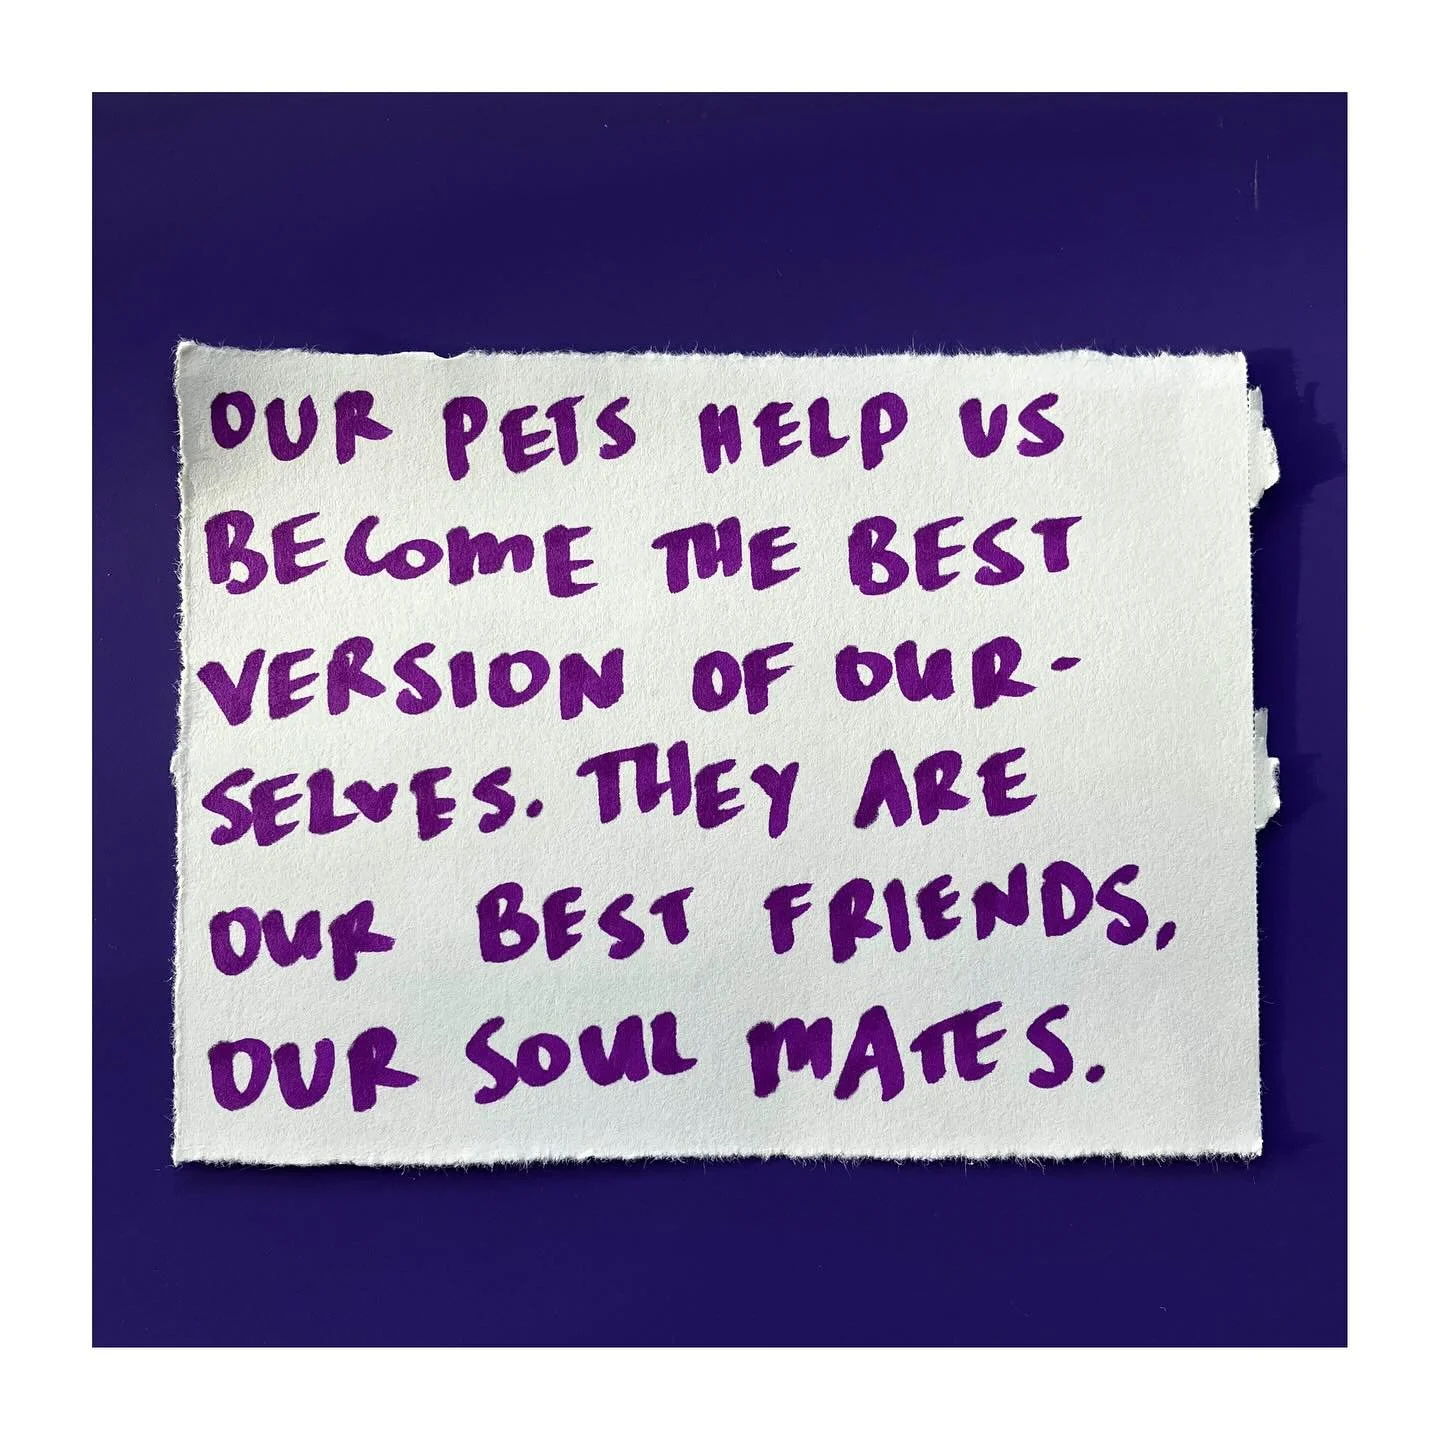 OUR PETS HELP US
BECOME THE BEST
VERSION OF OUR-
SELVES. THEY ARE
OUR BEST FRIENDS,
OUR SOUL MATES.